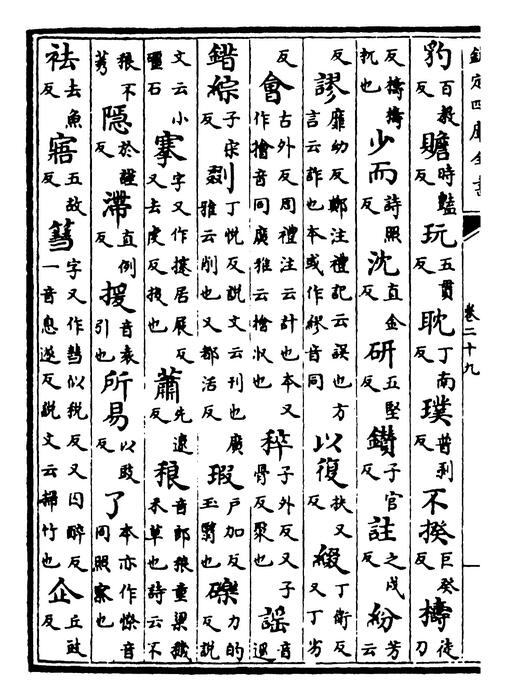 欽定四庫全書 卷二十九
豹百教反贍時豔反玩五貫反耽丁南反璞普剥反不揆巨癸反檮徒刀
反檮檮杌也少而詩照反沈直金反研五堅反鑚子官反註之戍反紛芳云
反謬靡幼反鄭注禮記云誤也方言云詐也本或作繆音同以復扶又反綴丁衛反又丁劣
反會古外反周禮注云計也本又作檜音同廣雅云檜收也稡子外反又子骨反聚也謡音遥
錯綜子宋反剟丁悦反説文云刋也廣雅云削也又都活反瑕户加反玉翳也礫力的反説
文云小礓石搴字又作攓居展反又去虔反拔也蕭先遼反稂音郎稂童梁穢禾草也詩云不
稂不莠隱於謹反滯直例反援音袁引也所易以豉反了本亦作憭音同照察也
袪去魚反寤五故反篲字又作彗似税反又囚醉反一音息遂反説文云掃竹也企丘豉反